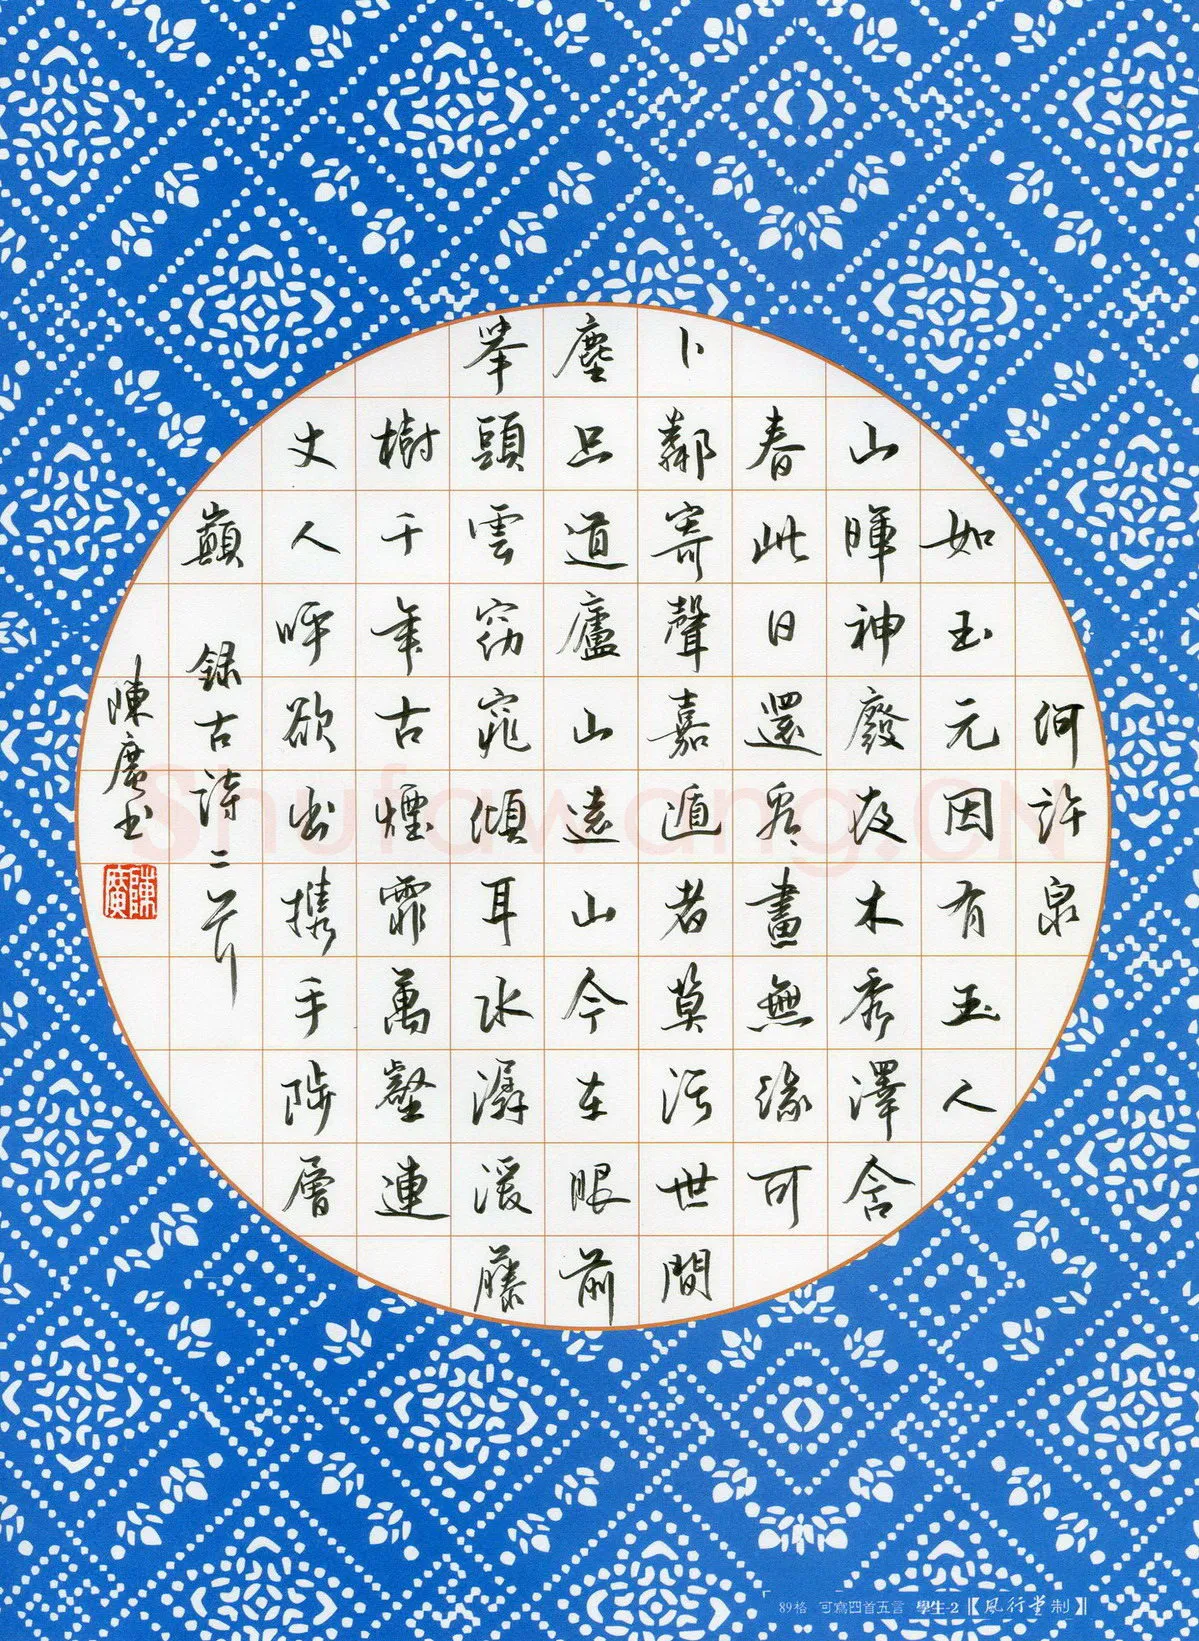 何許泉
如玉元因有玉人
山暉神廢夜木秀澤含
春此日還看畫無緣可
卜鄰寄聲嘉遁者莫污世間
塵只道廬山遠山今在眼前
舉頭雲窈窕傾耳水潺湲藤
樹千年古煙霏萬壑連
丈人呼欲出攜手陟層
巔 録古詩二首
陳廣书
陳廣
Shufawang.CN
89格 可寫四首五言 學生-2【風行堂制】